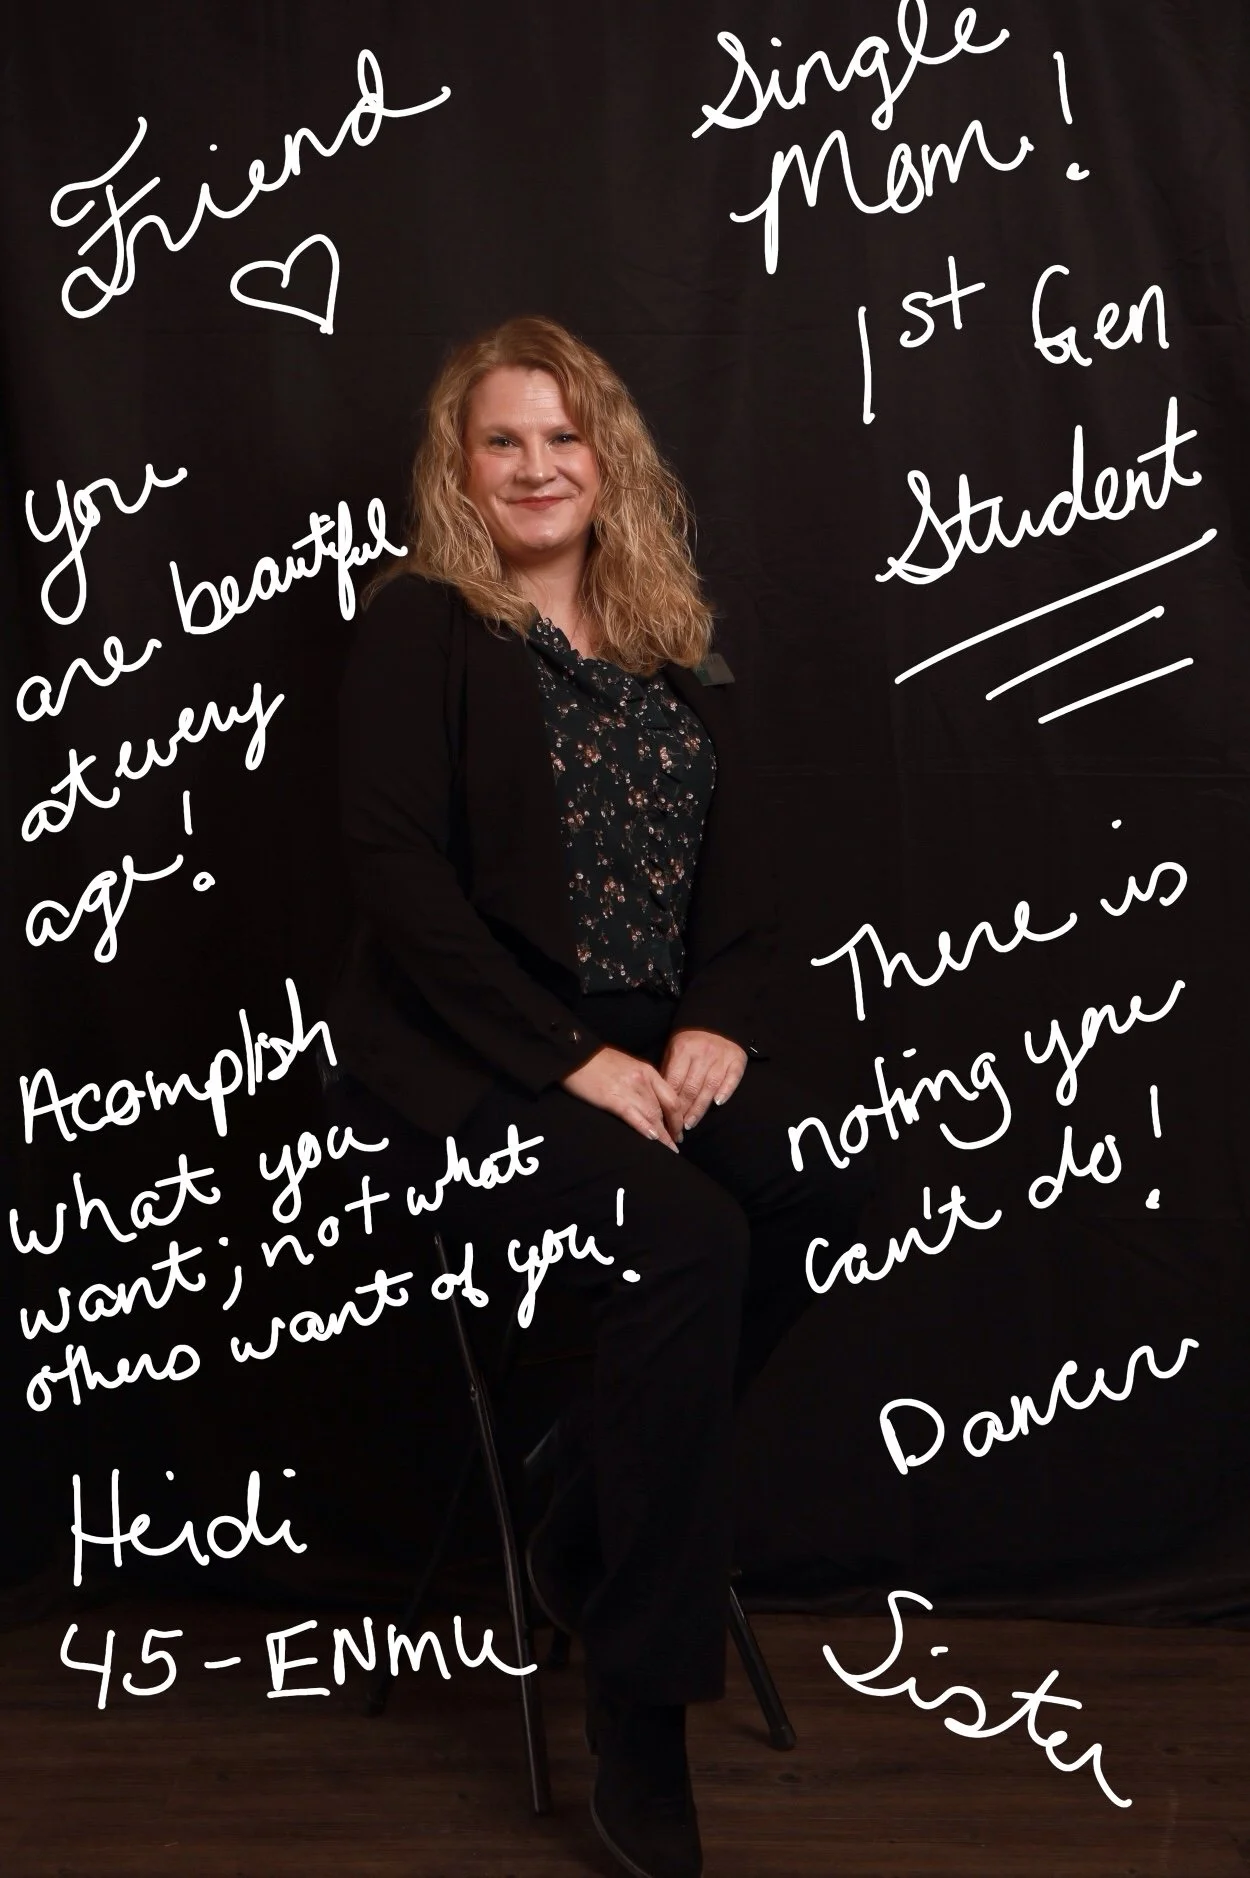 Friend
You
are beautiful
at every
age!
Acomplish
what you
want; not what
others want of you!
Heidi
45-ENMU
Single
Mom!
1st Gen
Student
There is
noting you
can't do!
Dancer
Sister